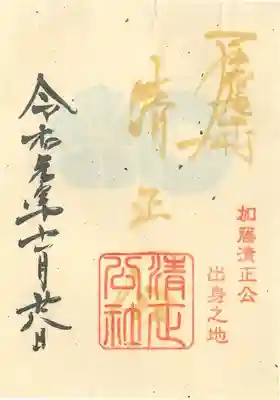 加藤清正公
出身之地
清正
清正公社
令和元年十一月廿八日